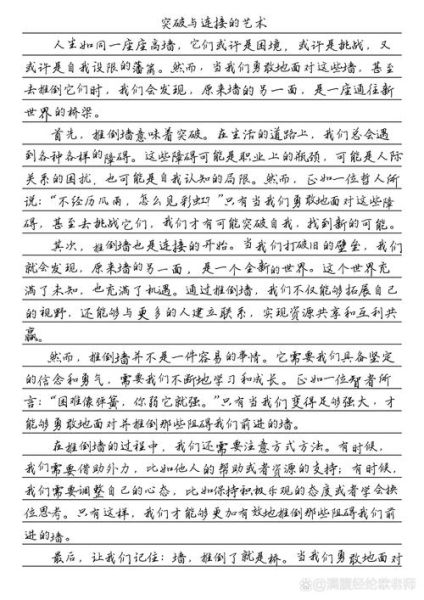 突破与连接的艺术
人生如同一座座高墙，它们或许是困境，或许是挑战，又
或许是自我设限的藩篱。然而，当我们勇敢地面对这些墙，甚至
去推倒它们时，我们会发现，原来墙的另一面，是一座通往新
世界的桥梁。
首先，推倒墙意味着突破。在生活的道路上，我们总会遇
到各种各样的障碍。这些障碍可能是职业上的瓶颈，可能是人际
关系的困扰，也可能是自我认知的局限。然而，正如一位哲人所
说：“不经历风雨，怎么见彩虹？”只有当我们勇敢地面对这些障
碍，甚至去挑战它们，我们才有可能突破自我，找到新的可能。
其次，推倒墙也是连接的开始。当我们打破旧的壁垒，我们
就会发现，原来墙的另一面，是一个全新的世界。这个世界充
满了未知，也充满了机遇。通过推倒墙，我们不仅能够拓展自己
的视野，还能够与更多的人建立联系，实现资源共享和互利共
赢。
然而，推倒墙并不是一件容易的事情。它需要我们具备坚定
的信念和勇气，需要我们不断地学习和成长。正如一位智者所
言：“困难像弹簧，你弱它就强。”只有当我们变得足够强大，才
能够勇敢地面对并推倒那些阻碍我们前进的墙。
在推倒墙的过程中，我们还需要注意方式方法。有时候，
我们需要借助外力，比如他人的帮助或者资源的支持；有时候，
我们需要调整自己的心态，比如保持积极乐观的态度或者学会换
位思考。只有这样，我们才能够更加有效地推倒那些阻碍我们前
进的墙。
最后，让我们记住：墙，推倒了就是桥。当我们勇敢地面对
@满腹经纶歌老师